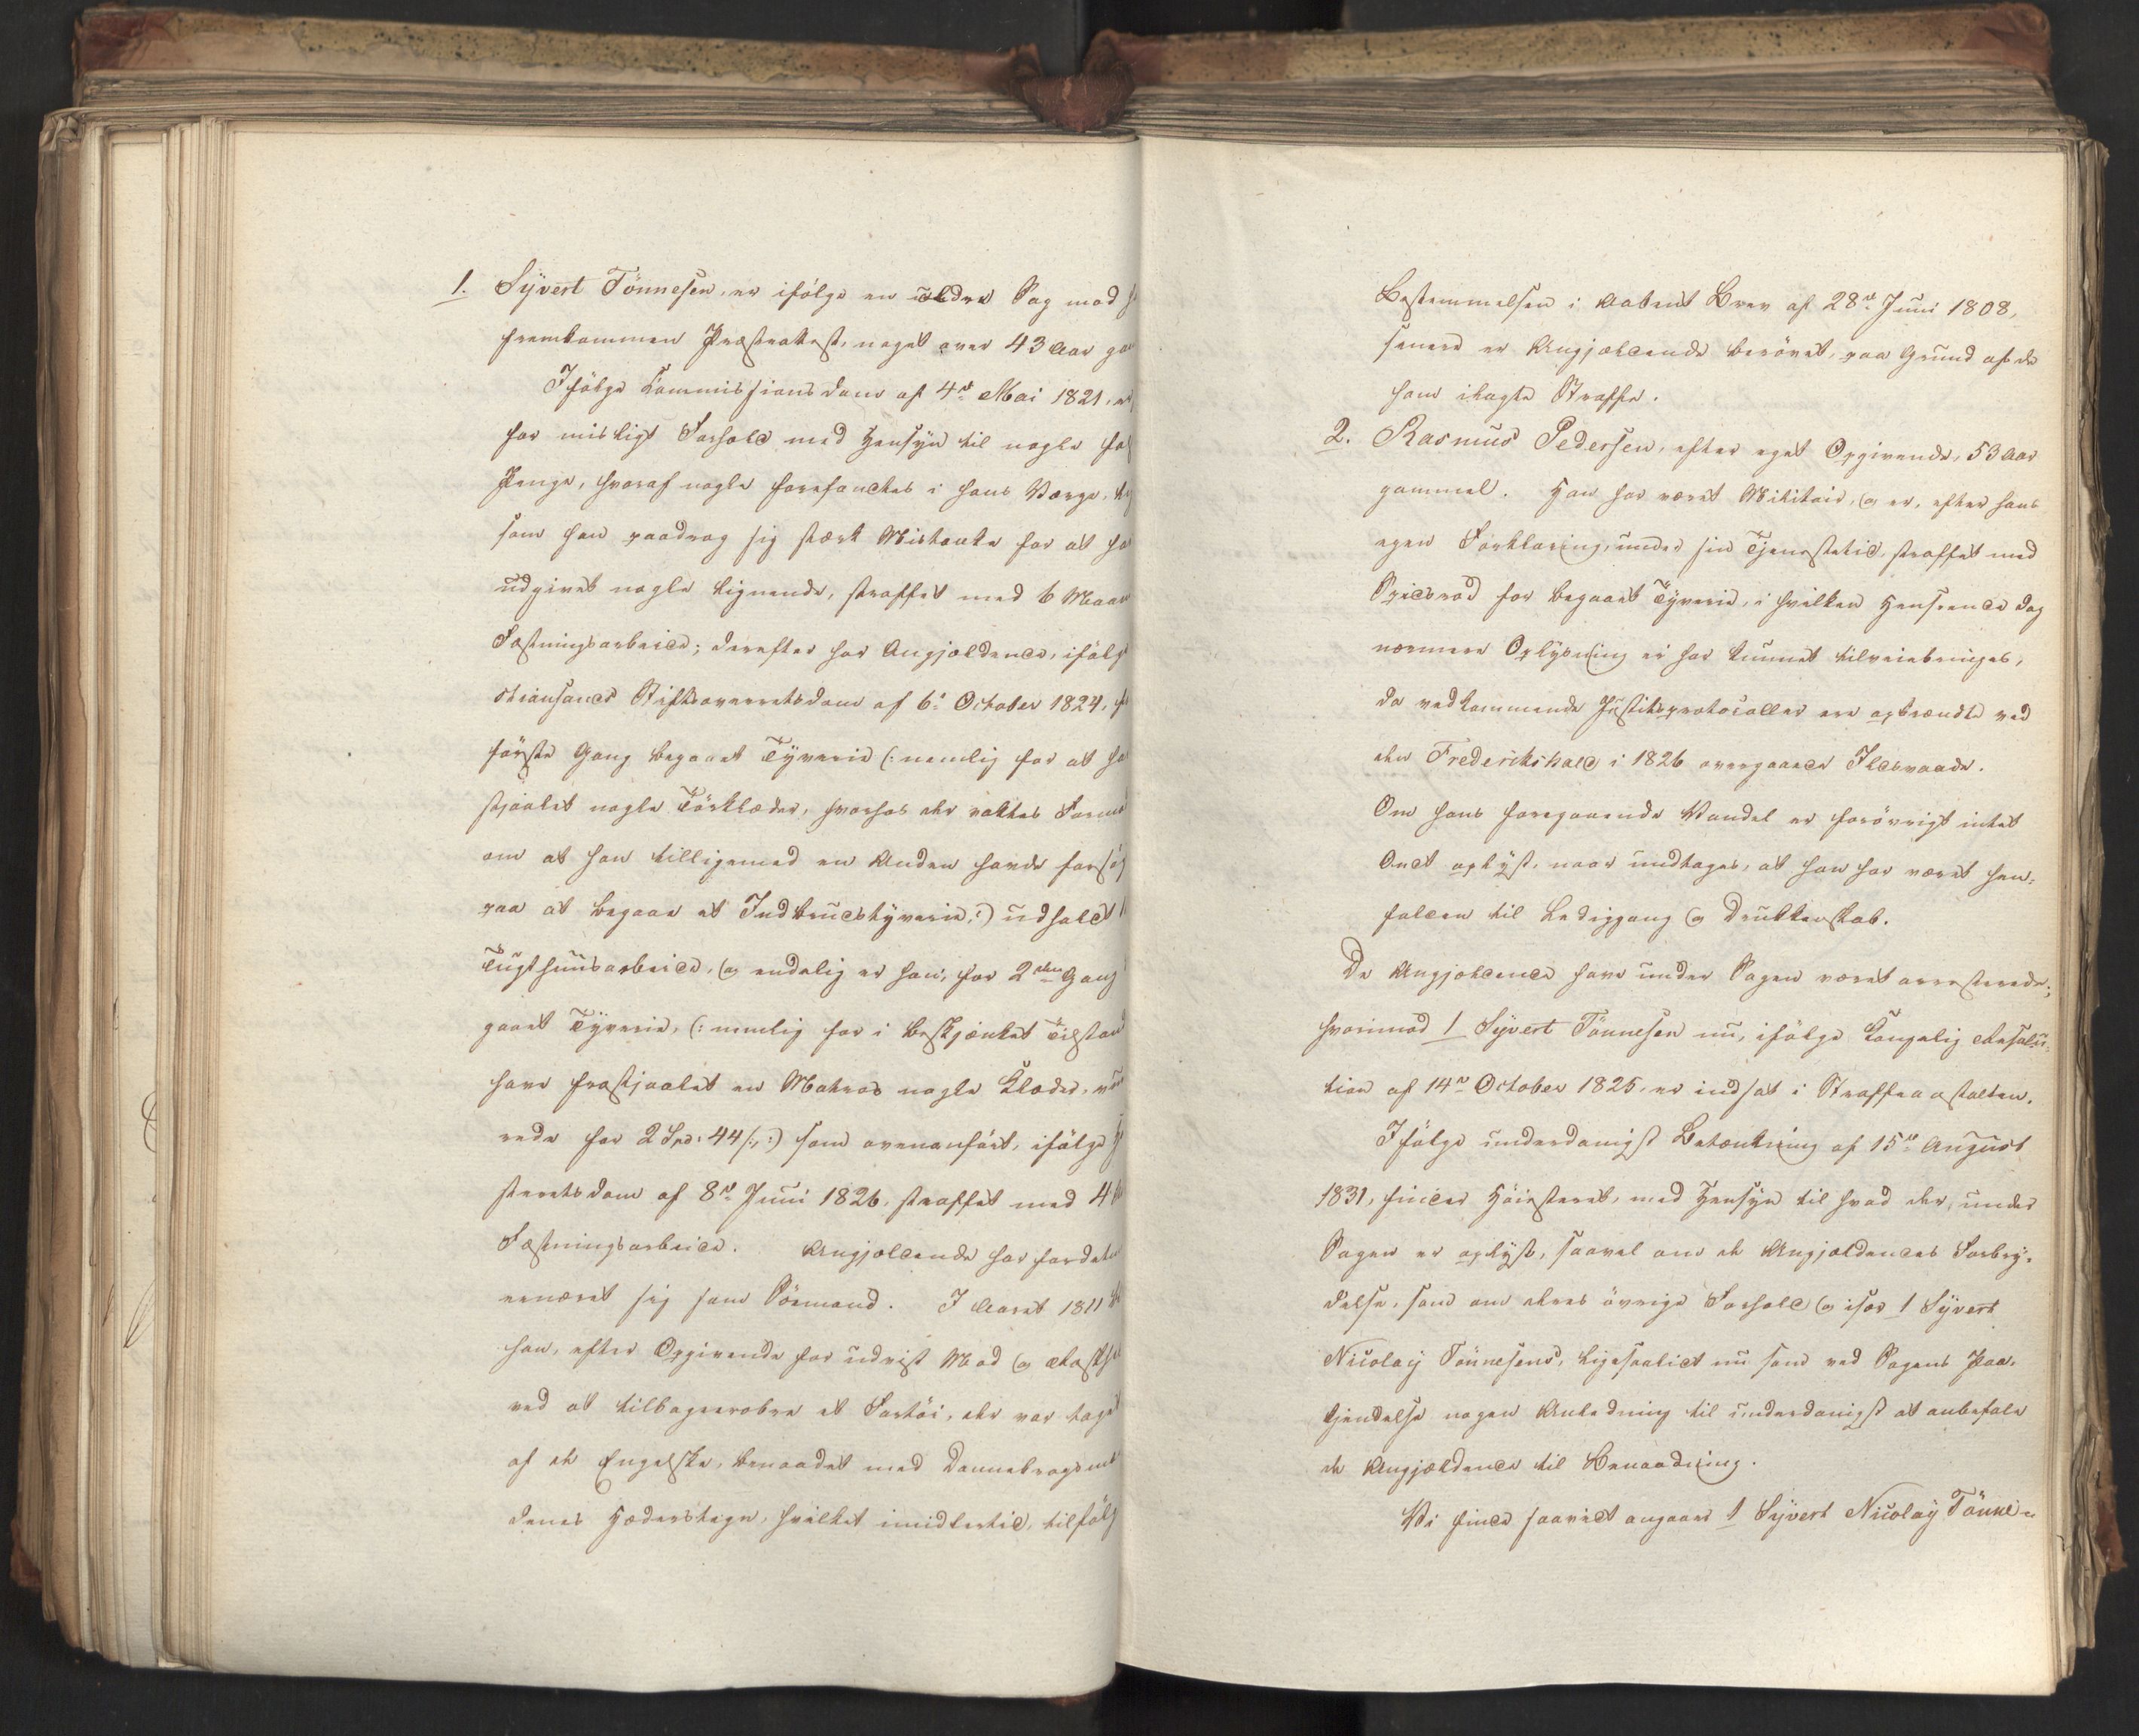 1. Syvert Tönnesen, er ifölge en ældre Sag mod
fremkommen Præsteattest, noget over 43 Aar
Ifölge Commissionsdom af 4de Mai 1821, er
for misligt Forhold med Hensyn til nogle
Penge, hvoraf nogle forefandtes i hans Værge,
som han paadrog sig stærk Mistanke for at
udgivet nogle lignende, straffet med 6
Fæstningsarbeide; derefter har Angjældende, ifölg
stiansands Stiftsoverretsdom af 6te October 1824,
förste Gang begaaet Tyverie (: nemlig for at
stjaalet nogle Törklæder, hvorhos der vaktes
om at han tilligemed en Anden havde forsög
paa at begaae et Indbrudstyverie,:) udholdt
Tugthuusarbeide, og endelig er han, for 2den Gang
gaaet Tyverie, (: nemlig for i beskjænket Tilstand
have frastjaalet en Matros nogle Klæder,
rede for 2 Spd: 44 s,:) som ovenanfört, ifölge
steretsdom af 8de Juni 1826, straffet med 4
Fæstningsarbeide. Angjældende har
ernæret sig som Sömand. I Aaret 1811
han, efter Opgivende for udvist Mod og
ved at tilbageerobre et Fartöi, der var taget
af de Engelske, benaadet med
denes Hæderstegn, hvilket imidlertid, tilfölg
Bestemmelsen i aabent Brev af 28de Juni 1808,
senere er Angjældende berövet, paa Grund af de
ham ilagte Straffe.
2. Rasmus Pedersen, efter eget Opgivende, 53 Aar
gammel. Han har været Militair, og er, efter hans
egen Forklaring, under sin Tjenestetid, straffet med
Spidsrod for begaaet Tyverie, i hvilken Henseende dog
nærmere Oplysning ei har kunnet tilveiebringes,
da vedkommende Justitsprotocoller ere opbrændte ved
den Frederikshald i 1826 overgaaede Ildsvaade.
Om hans foregaaende Vandel er forövrigt intet
Ondt oplyst, naar undtages, at han har været hen-
falden til Lediggang og Drukkenskab.
De Angjældende have under Sagen været arresterede;
hvorimod 1 Syvert Tönnesen nu, ifölge Kongelig Resolu-
tion af 14de October 1825, er indsat i Straffeanstalten.
Ifölge underdanigst Betænkning af 15de August
1831, finder Höiesteret, med Hensyn til hvad der, under
Sagen er oplyst, saavel om de Angjældendes Forbry-
delse, som om deres övrige Forhold og især 1 Syvert
Nicolay Tönnesens, ligesaalidt nu som ved Sagens Paa-
kjendelse nogen Anledning til underdanigst at anbefale
de Angjældende til Benaadning.
Vi finde saavidt angaaer 1 Syvert Nicolay Tönne-